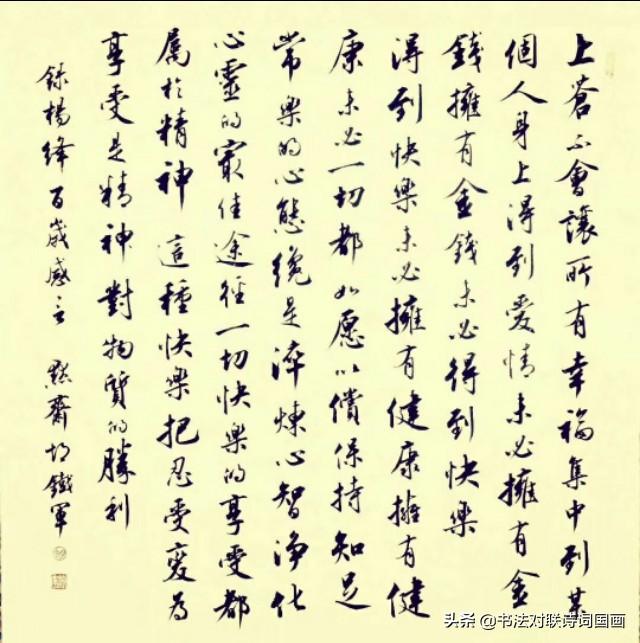 上蒼不會讓所有幸福集中到某
個人身上得到爱情未必擁有金
錢擁有金錢未必得到快樂
得到快樂未必擁有健康擁有健
康未必一切都如愿以償保持知足
常樂的心態纔是淬煉心智净化
心靈的最佳途径一切快樂的享受都
屬於精神 這種快樂把忍受変为
享受是精神對物质的勝利
録楊绛百歲感言 默齋胡鐵軍
头条 @书法对联诗词国画